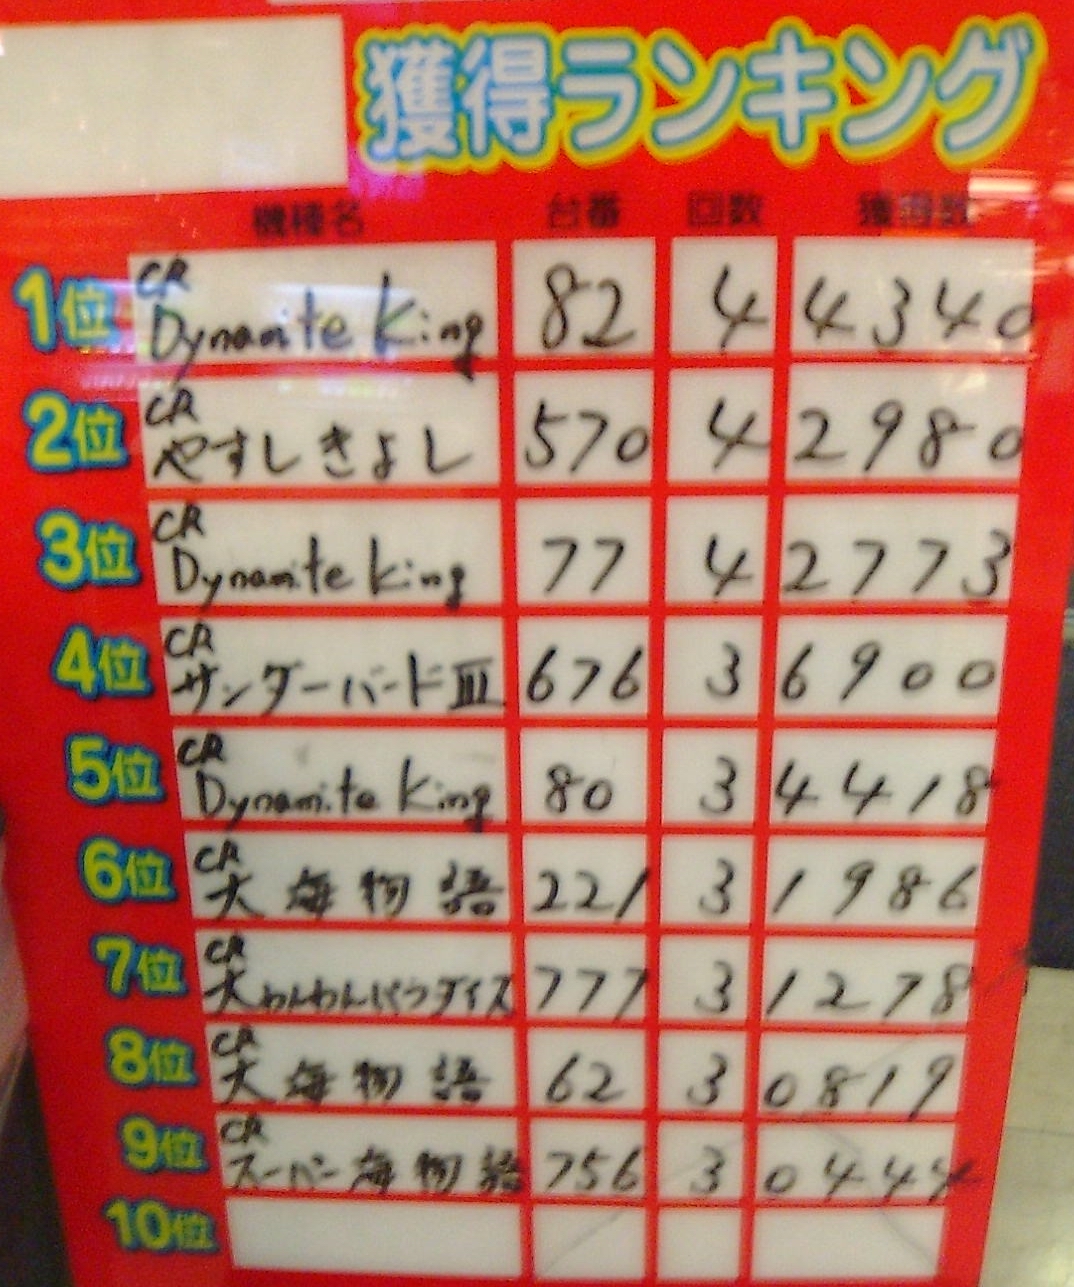 獲得ランキング
機種名 台番 回数 獲得数
1位 CR Dynamite King 82 4 4340
2位 CR やすしきよし 570 4 2980
3位 CR Dynamite King 77 4 2773
4位 CR サンダーバードIII 676 3 6900
5位 CR Dynamite King 80 3 4418
6位 CR 大海物語 221 3 1986
7位 CR 大わんわんパラダイス 777 3 1278
8位 CR 大海物語 62 3 0819
9位 CR スーパー海物語 756 3 0444
10位